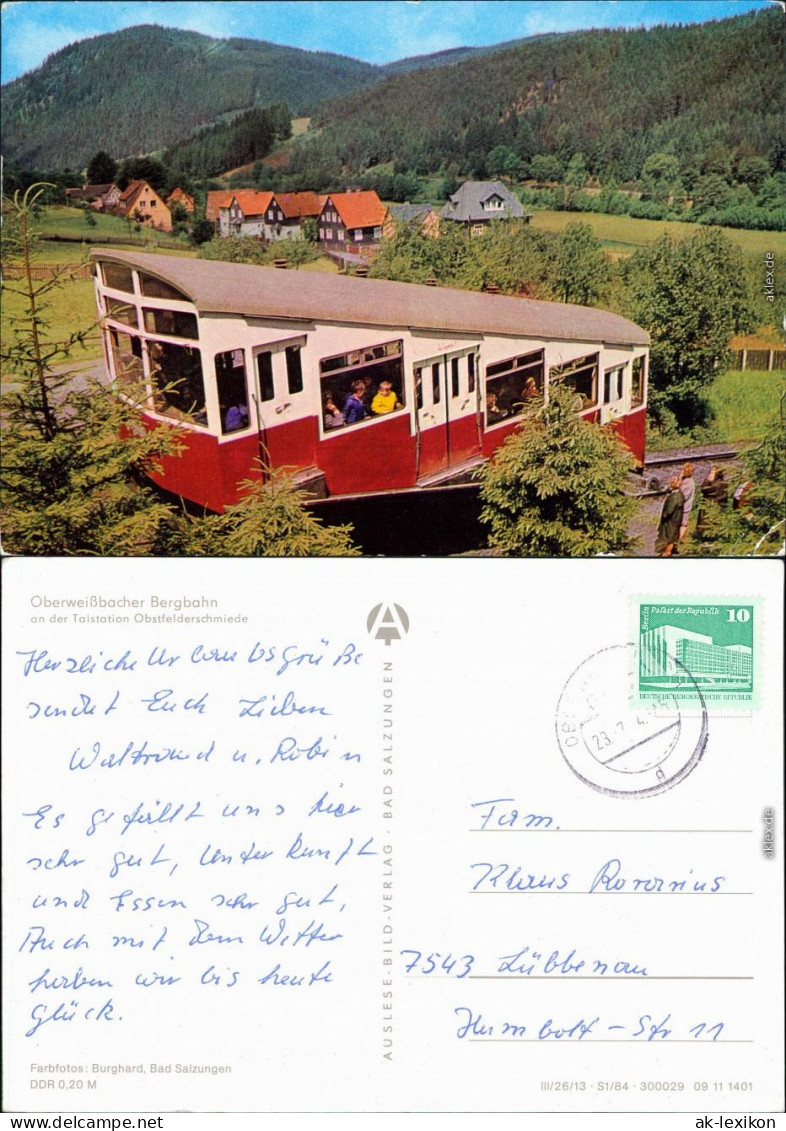 Oberweißbacher Bergbahn
an der Talstation Obstfelderschmiede
Herzliche Urlaubsgrüße
sendet Euch Lieben
Waltraud u. Robin
Es gefällt uns hier
sehr gut, Unterkunft
und Essen sehr gut,
Auch mit dem Wetter
haben wir bis heute
Glück.
Farbfotos: Burghard, Bad Salzungen
DDR 0,20 M
AUSLESE-BILD-VERLAG · BAD SALZUNGEN
A
Berlin
Palast der Republik
10
DEUTSCHE DEMOKRATISCHE REPUBLIK
23.
d
Fam.
Klaus
7543 Lübbenau
Humboldt-Str 11
III/26/13 · S1/84 · 300029 09 11 1401
ak-lexikon.de
ak-lexikon.de
ak-lexikon
www.delcampe.net